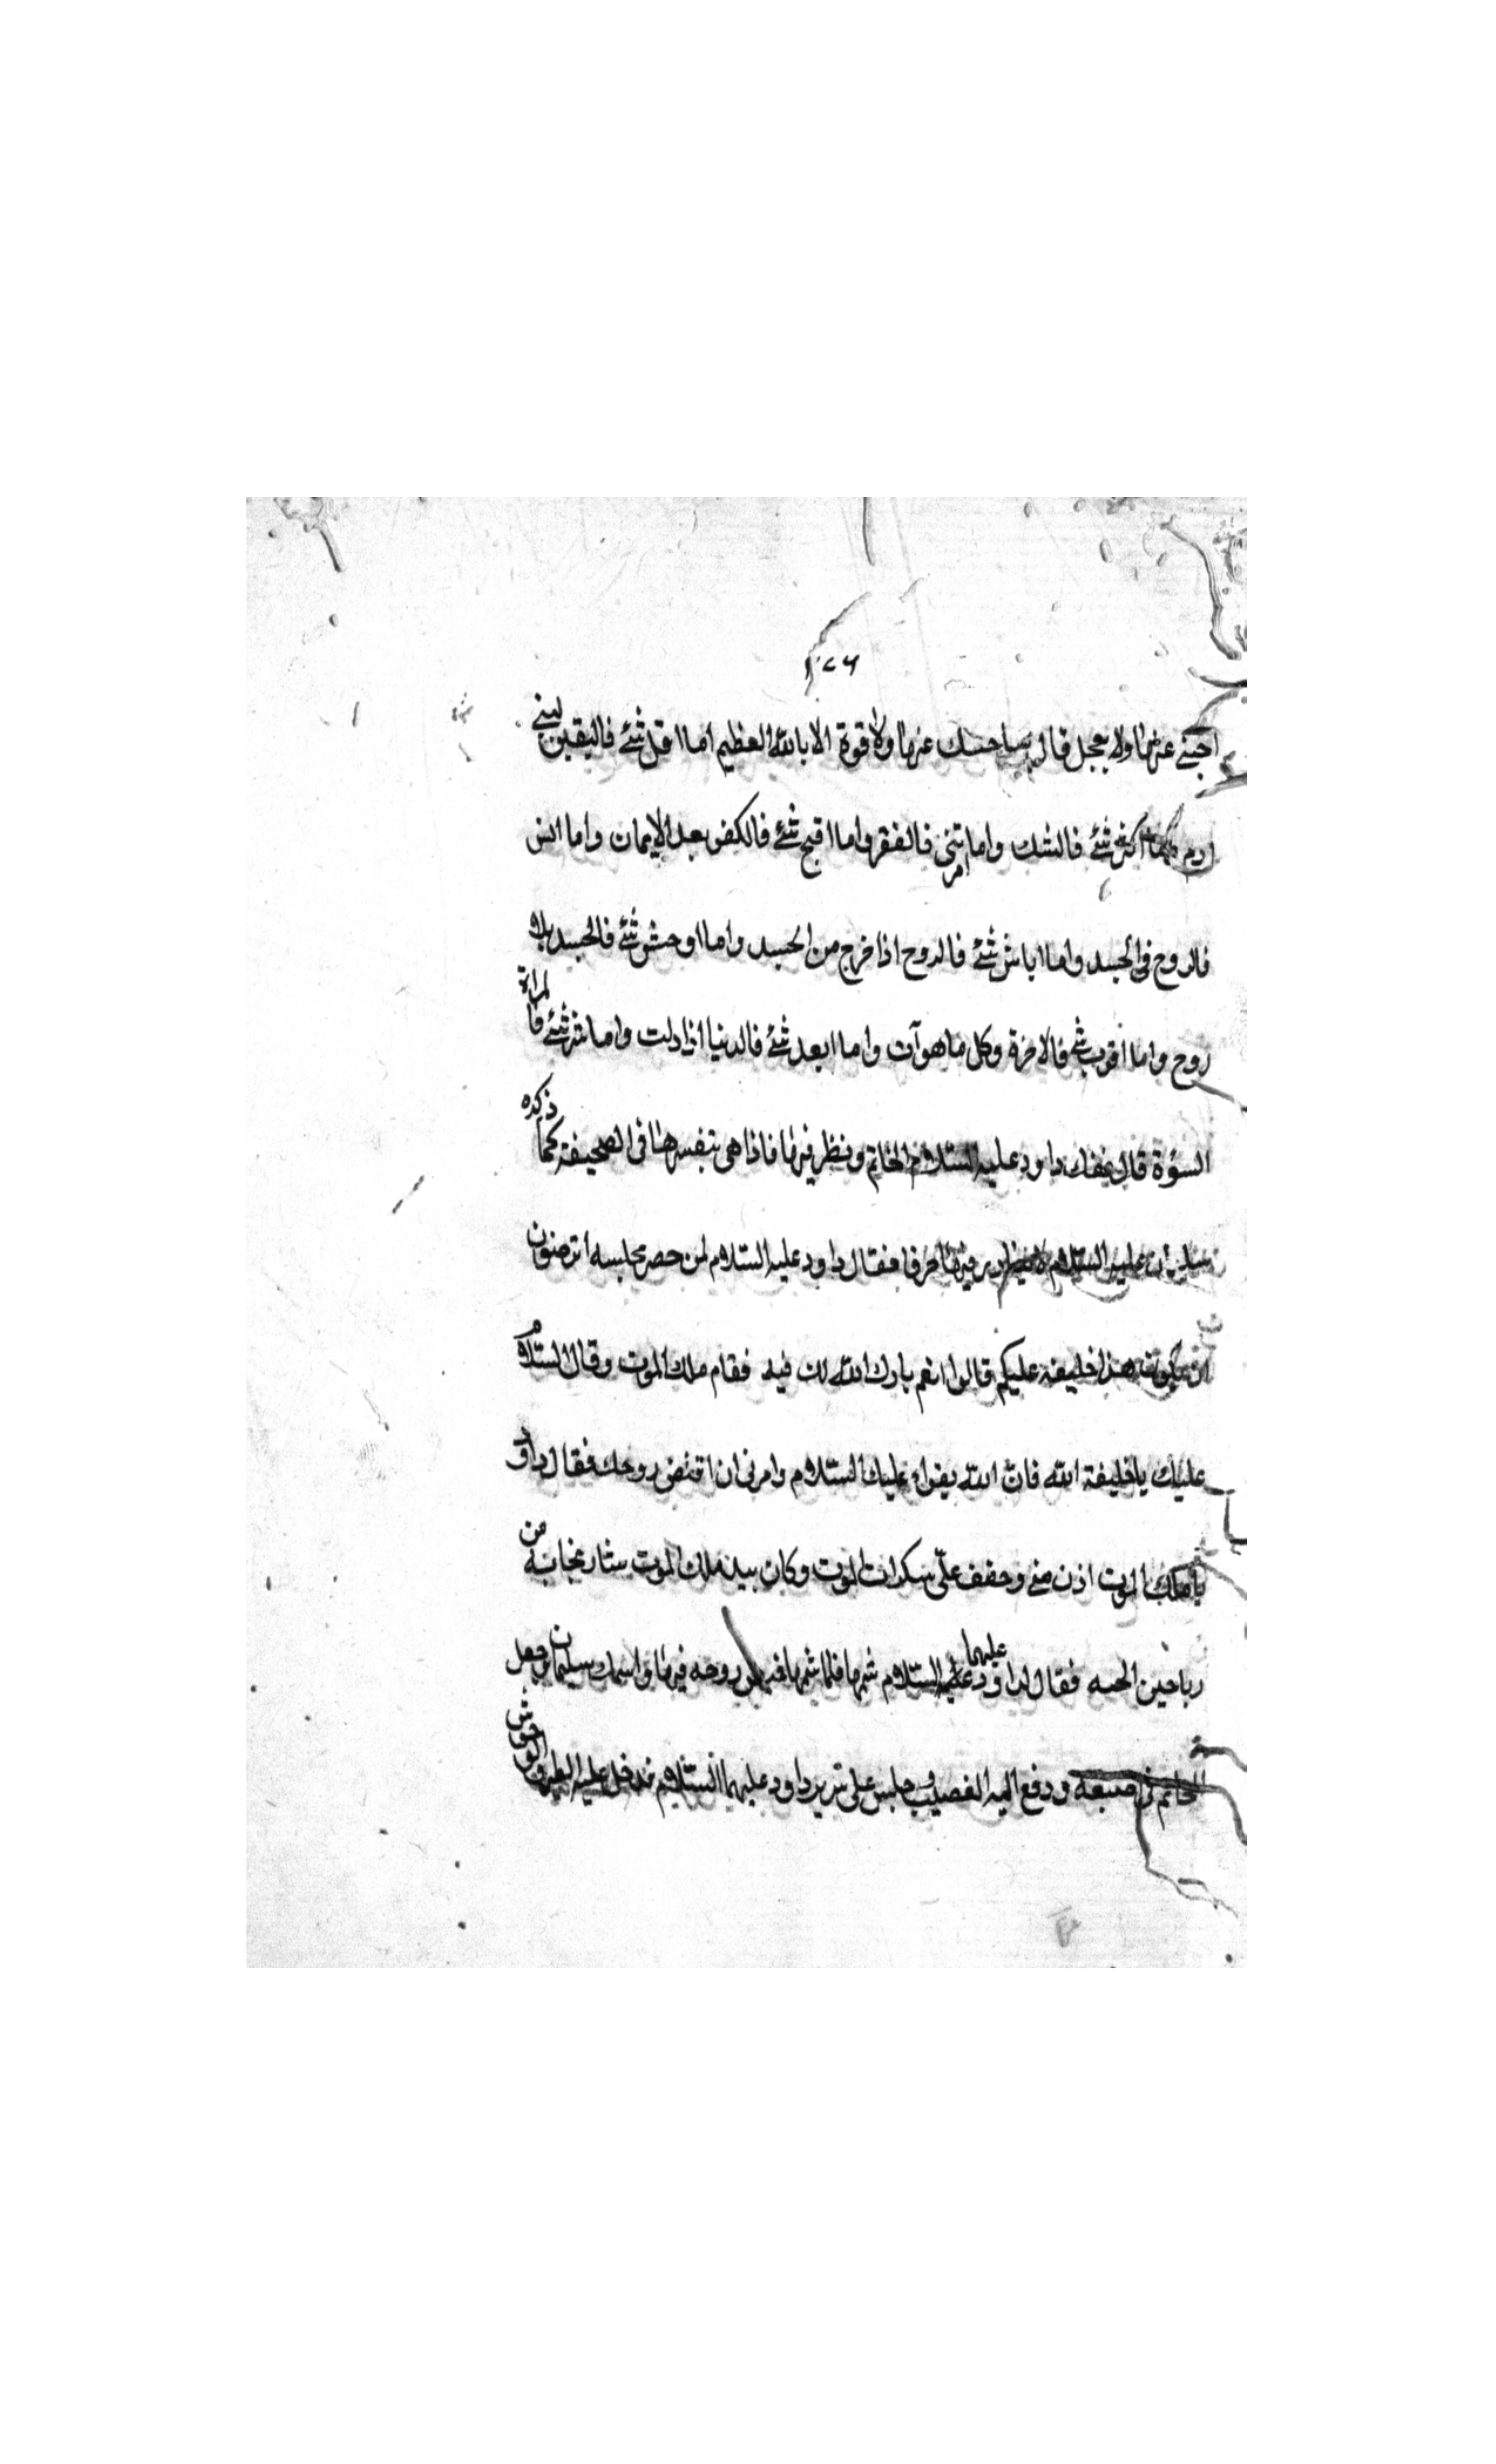 اجبني عنها ولا تعجل قال ساحسبك عنها ولا قوة الا بالله العظيم اما اقل شئ فاليقين لبني
ادم واما اكثر شئ فالشك واما امر شئ فالفقر واما اقبح شئ فالكفر بعد الايمان واما انس
فالروح في الجسد واما اباش شئ فالروح اذا خرج من الجسد واما اوحش شئ فالجسد بلا
روح واما اقرب شئ فالاخرة وكل ما هو آت واما ابعد شئ فالدنيا اذا دلت واما شر شئ فا لمراة
السؤة قال ففك داود عليه السلام الخاتم ونظر فيها فاذا هي بنفسها في الصحيفة كما ذكره
سليمان عليه السلام فيها حرفا فقال داود عليه السلام لمن حضر مجلسه اترضون
ان يكون هذا خليفة عليكم قالوا نعم بارك الله لك فيه فقام ملك الموت وقال السلام
عليك يا خليفة الله فان الله يقراء عليك السلام وامرني ان اقبض روحك فقال داو
يا ملك الموت ادن مني وخفف علي سكرات الموت وكان بيد ملك الموت من
رياحين الجنه فقال لداود عليهما السلام شمها فلما شمها روحه فيها سليمان جعل
الخاتم في اصبعه ودفع اليه القضيب وجلس على سرير داود عليهما السلام فدخل عليه الطير والوحوش